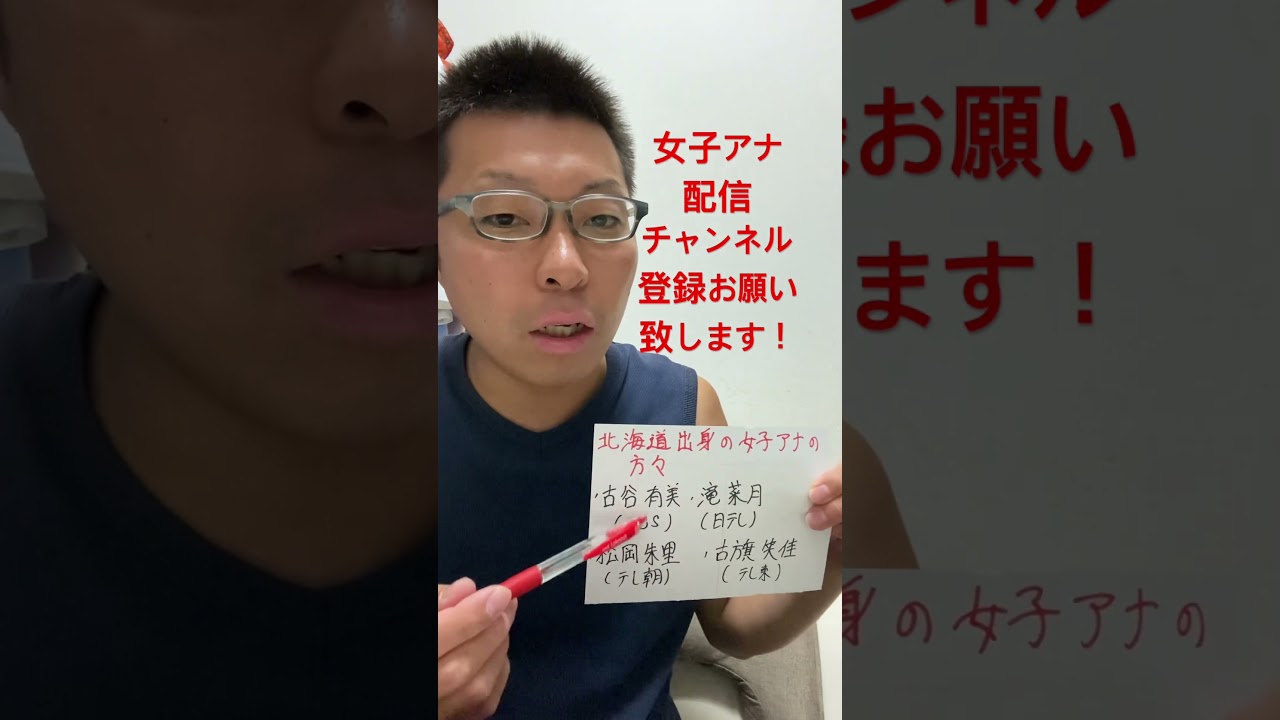 女子アナ
配信
チャンネル
登録お願い
致します！
北海道出身の女子アナの
方々
・古谷有美 ・滝菜月
(日テレ)
松岡朱里 ・古旗笑佳
(テレ朝) (テレ東)
お願い
ます！
身の女子アナの